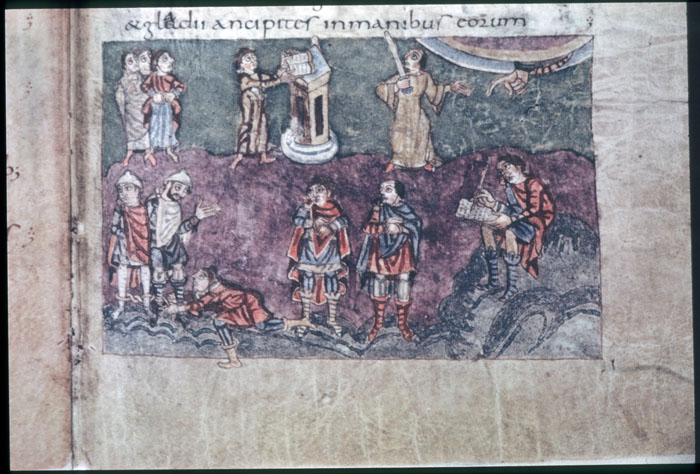 & gladii ancipites inmanibus eorum